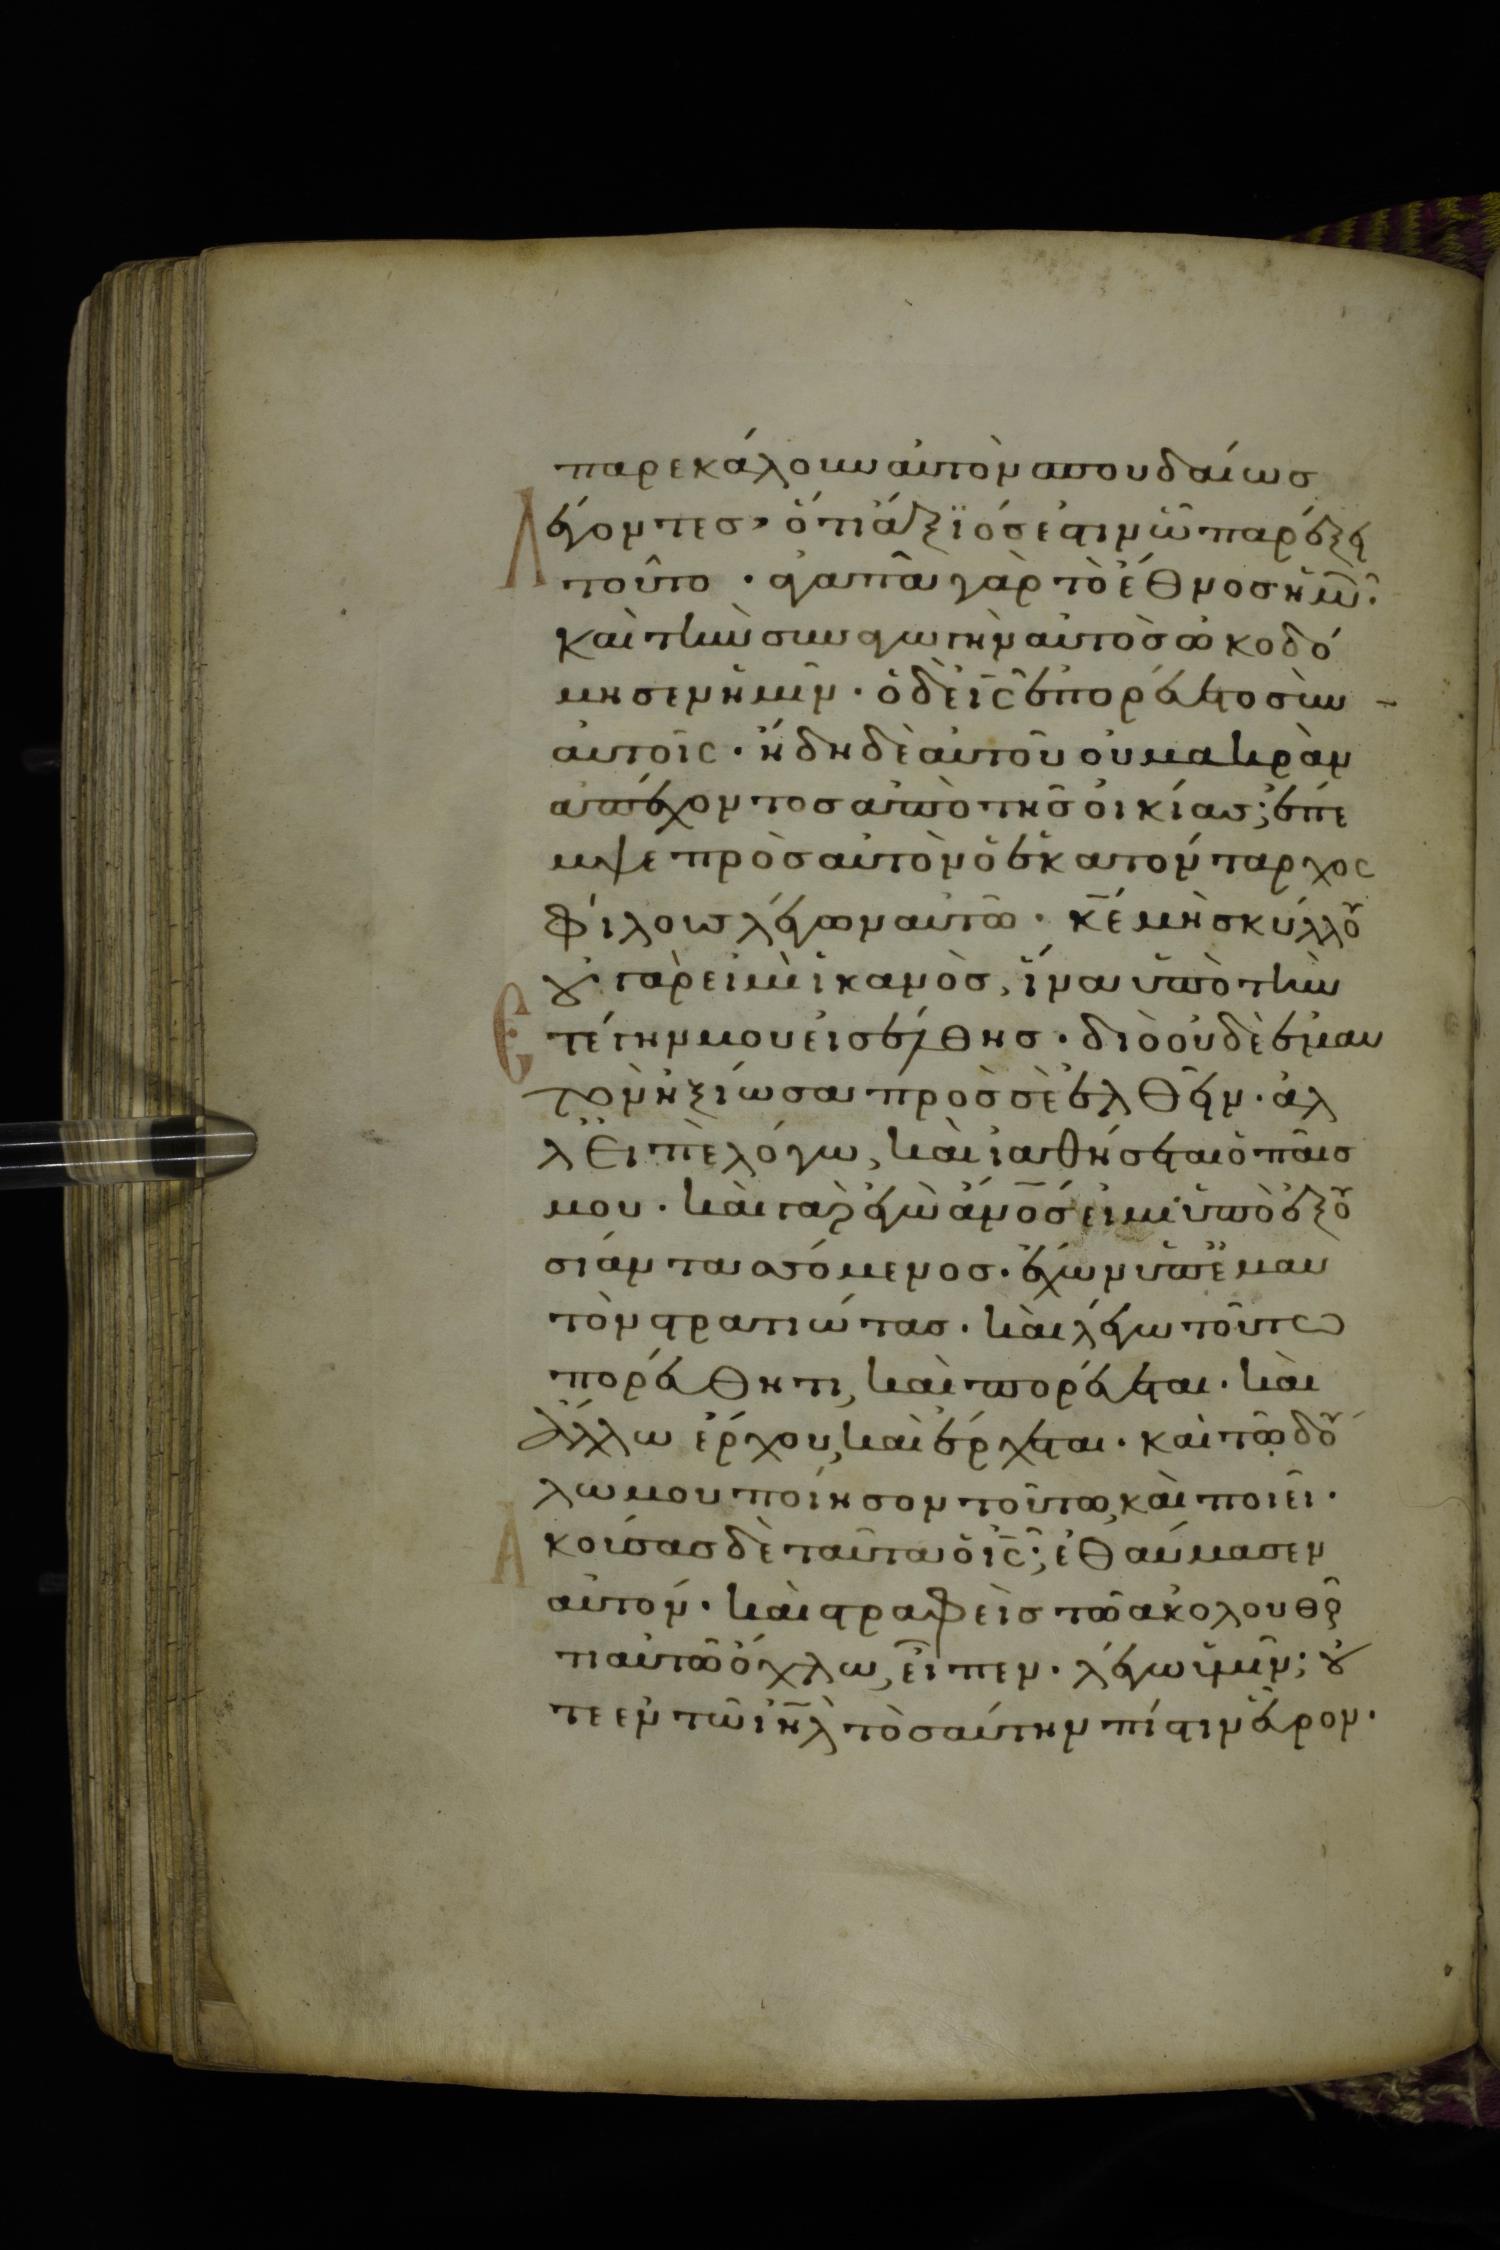 παρεκάλουν αὐτὸν σπουδαίως
λέγοντες, ὅτι ἄξϊός ἐστιν ὧ παρέξει
τοῦτο · ἀγαπᾶ γὰρ τὸ ἔθνος ἡμῶν ·
καὶ τὴν συναγωγὴν αὐτὸς ὠκοδό
μησεν ἡμῖν · ὁ δὲ ις̅ ἐπορεύετο σὺν
αὐτοῖς · ἤδη δὲ αὐτοῦ οὐ μακρὰν
ἀπέχοντος ἀπὸ τῆς οἰκίας; ἔπε
μψε πρὸς αὐτὸν ὁ ἑκατόνταρχος
φίλους λέγων αὐτῶ · κε̅ μὴ σκύλλου
οὐ γάρ εἰμὶ ἱκανὸς, ἵνα ὑπὸ τὴν
στέγην μου εἰσέλθης · διὸ οὐδὲ ἐμαυ
τὸν ἠξίωσα πρὸς σὲ ἐλθεῖν · ἀλ
λ εἰπὲ λόγω, καὶ ἰαθήσεται ὁ παῖς
μου · καὶ γαρ ἐγὼ ἄνος̅ εἰμὶ ὑπὸ ἐξου
σίαν τασσόμενος · ἔχων ὑπ ἐμαυ
τὸν στρατιώτας · καὶ λέγω τούτω
πορεύθητι, καὶ πορεύεται · καὶ
ἄλλω ἔρχου, καὶ ἔρχεται · καὶ τῶ δού
λω μου ποίησον τοῦτο, καὶ ποιεῖ ·
Ακούσας δὲ ταῦτα ὁ ις̅; ἐθαύμασεν
αὐτόν · καὶ στραφεὶς τῶ ἀκολουθοῦ
τι αὐτῶ ὄχλω, εἶπεν · λέγω ὑμῖν; οὔ
τε ἐν τῶ ιη̅λ τοσαύτην πίστιν εὗρον ·